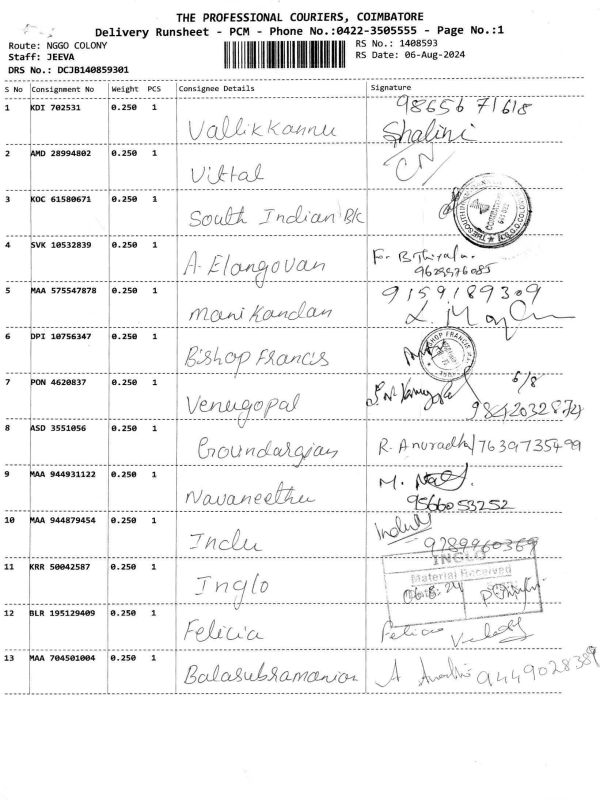 THE PROFESSIONAL COURIERS, COIMBATORE
Delivery Runsheet - PCM - Phone No.:0422-3505555 - Page No.:1
Route: NGGO COLONY RS No.: 1408593
Staff: JEEVA RS Date: 06-Aug-2024
DRS No.: DCJB140859301
S No Consignment No Weight PCS Consignee Details Signature
1 KDI 702531 0.250 1 Vallikkannu 98656 71618 Shalini
2 AMD 28994802 0.250 1 Vittal CN
3 KOC 61580671 0.250 1 South Indian Bk
4 SVK 10532839 0.250 1 A. Elangovan For B.
5 MAA 575547878 0.250 1 Manikandan 9159189309
6 DPI 10756347 0.250 1 Bishop Francis
7 PON 4620837 0.250 1 Venugopal 6/8 9842032874
8 ASD 3551056 0.250 1 R. Anuradha/7639735499
9 MAA 944931122 0.250 1 Navaneethu M. 9566053252
10 MAA 944879454 0.250 1 Indu 9789960369
11 KRR 50042587 0.250 1 Inglo INGLO
Material Received
06.8.24
12 BLR 195129409 0.250 1 Felicia Felicia
13 MAA 704501004 0.250 1 Balasubramanian A 9449028389